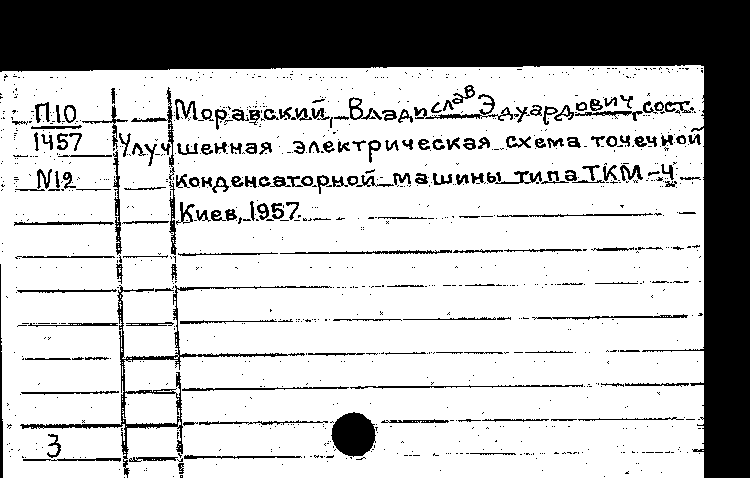 П10 Моравский, Владислав Эдуардович, сост.
1457 Улучшенная электрическая схема точечной
N12 конденсаторной машины типа ТКМ-4
Киев, 1957.
3